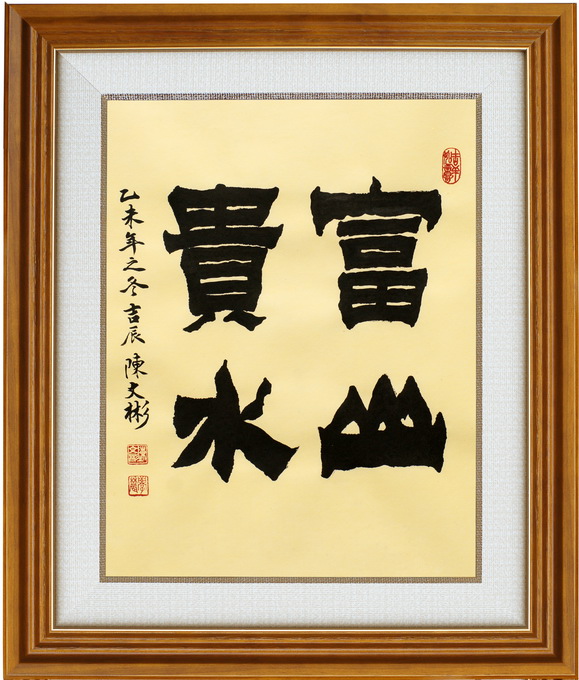 富山
貴水
乙未年之冬吉辰陳文彬